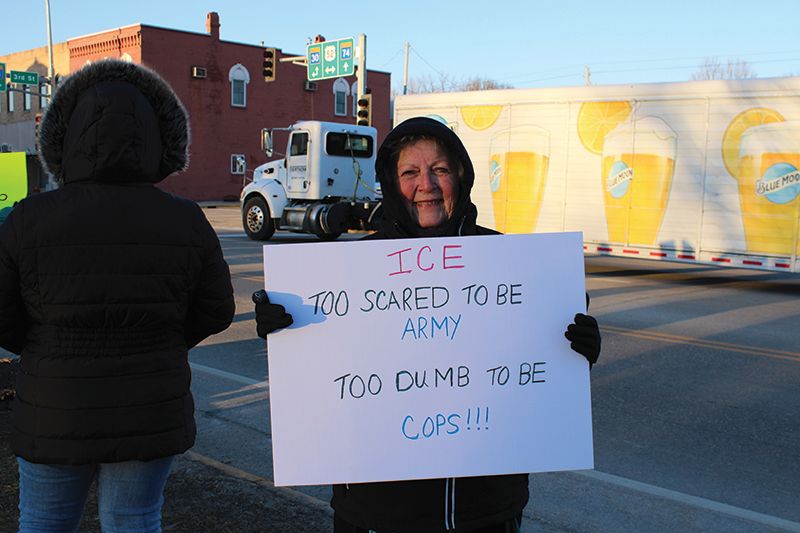 3rd St
30 52 74
ICE
TOO SCARED TO BE
ARMY
TOO DUMB TO BE
COPS!!!
BLUE MOON
BLUE MOON